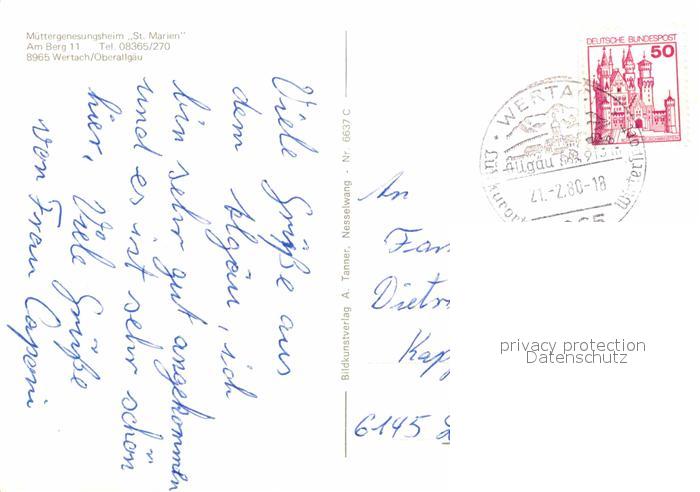 Müttergenesungsheim „St. Marien"
Am Berg 11 Tel. 08365/270
8965 Wertach/Oberallgäu
Viele Grüße aus
dem Algäu, ich
bin sehr gut angekommen
und es ist sehr schön
hier. Viele Grüße
von Frau Caponi
Bildkunstverlag A. Tanner, Nesselwang - Nr. 6637 C
An
Fam
Dietr
Kapp
6145
DEUTSCHE BUNDESPOST
50
WERTA
Allgäu
21.-2.80-18
privacy protection
Datenschutz